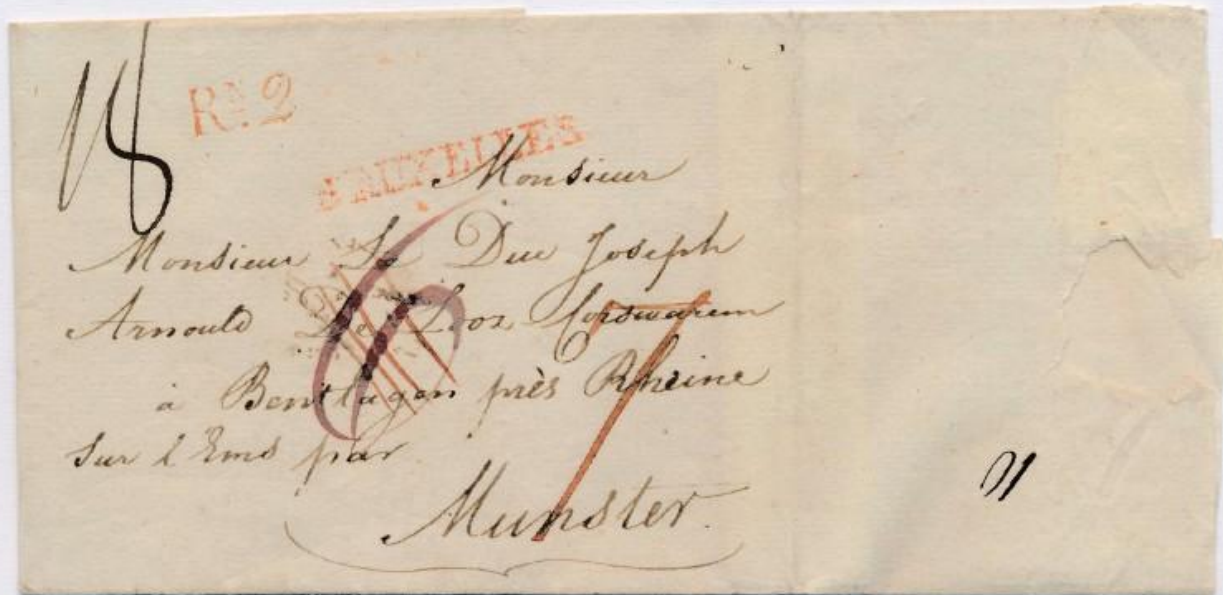 18
RN. 2
BRUXELLES
Monsieur
Monsieur Le Duc Joseph
Arnould De Looz Corswarem
à Bentlagen près Rheine
sur l'Ems par
Munster
6
7